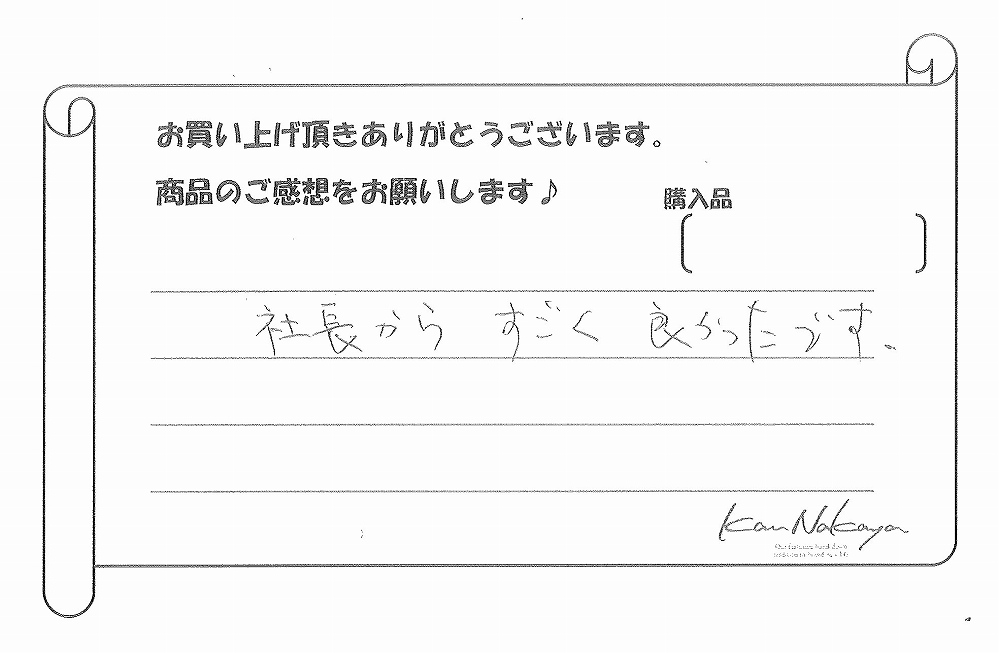 お買い上げ頂きありがとうございます。
商品のご感想をお願いします♪
購入品
社長から すごく 良かったです。
Kan Nakaya